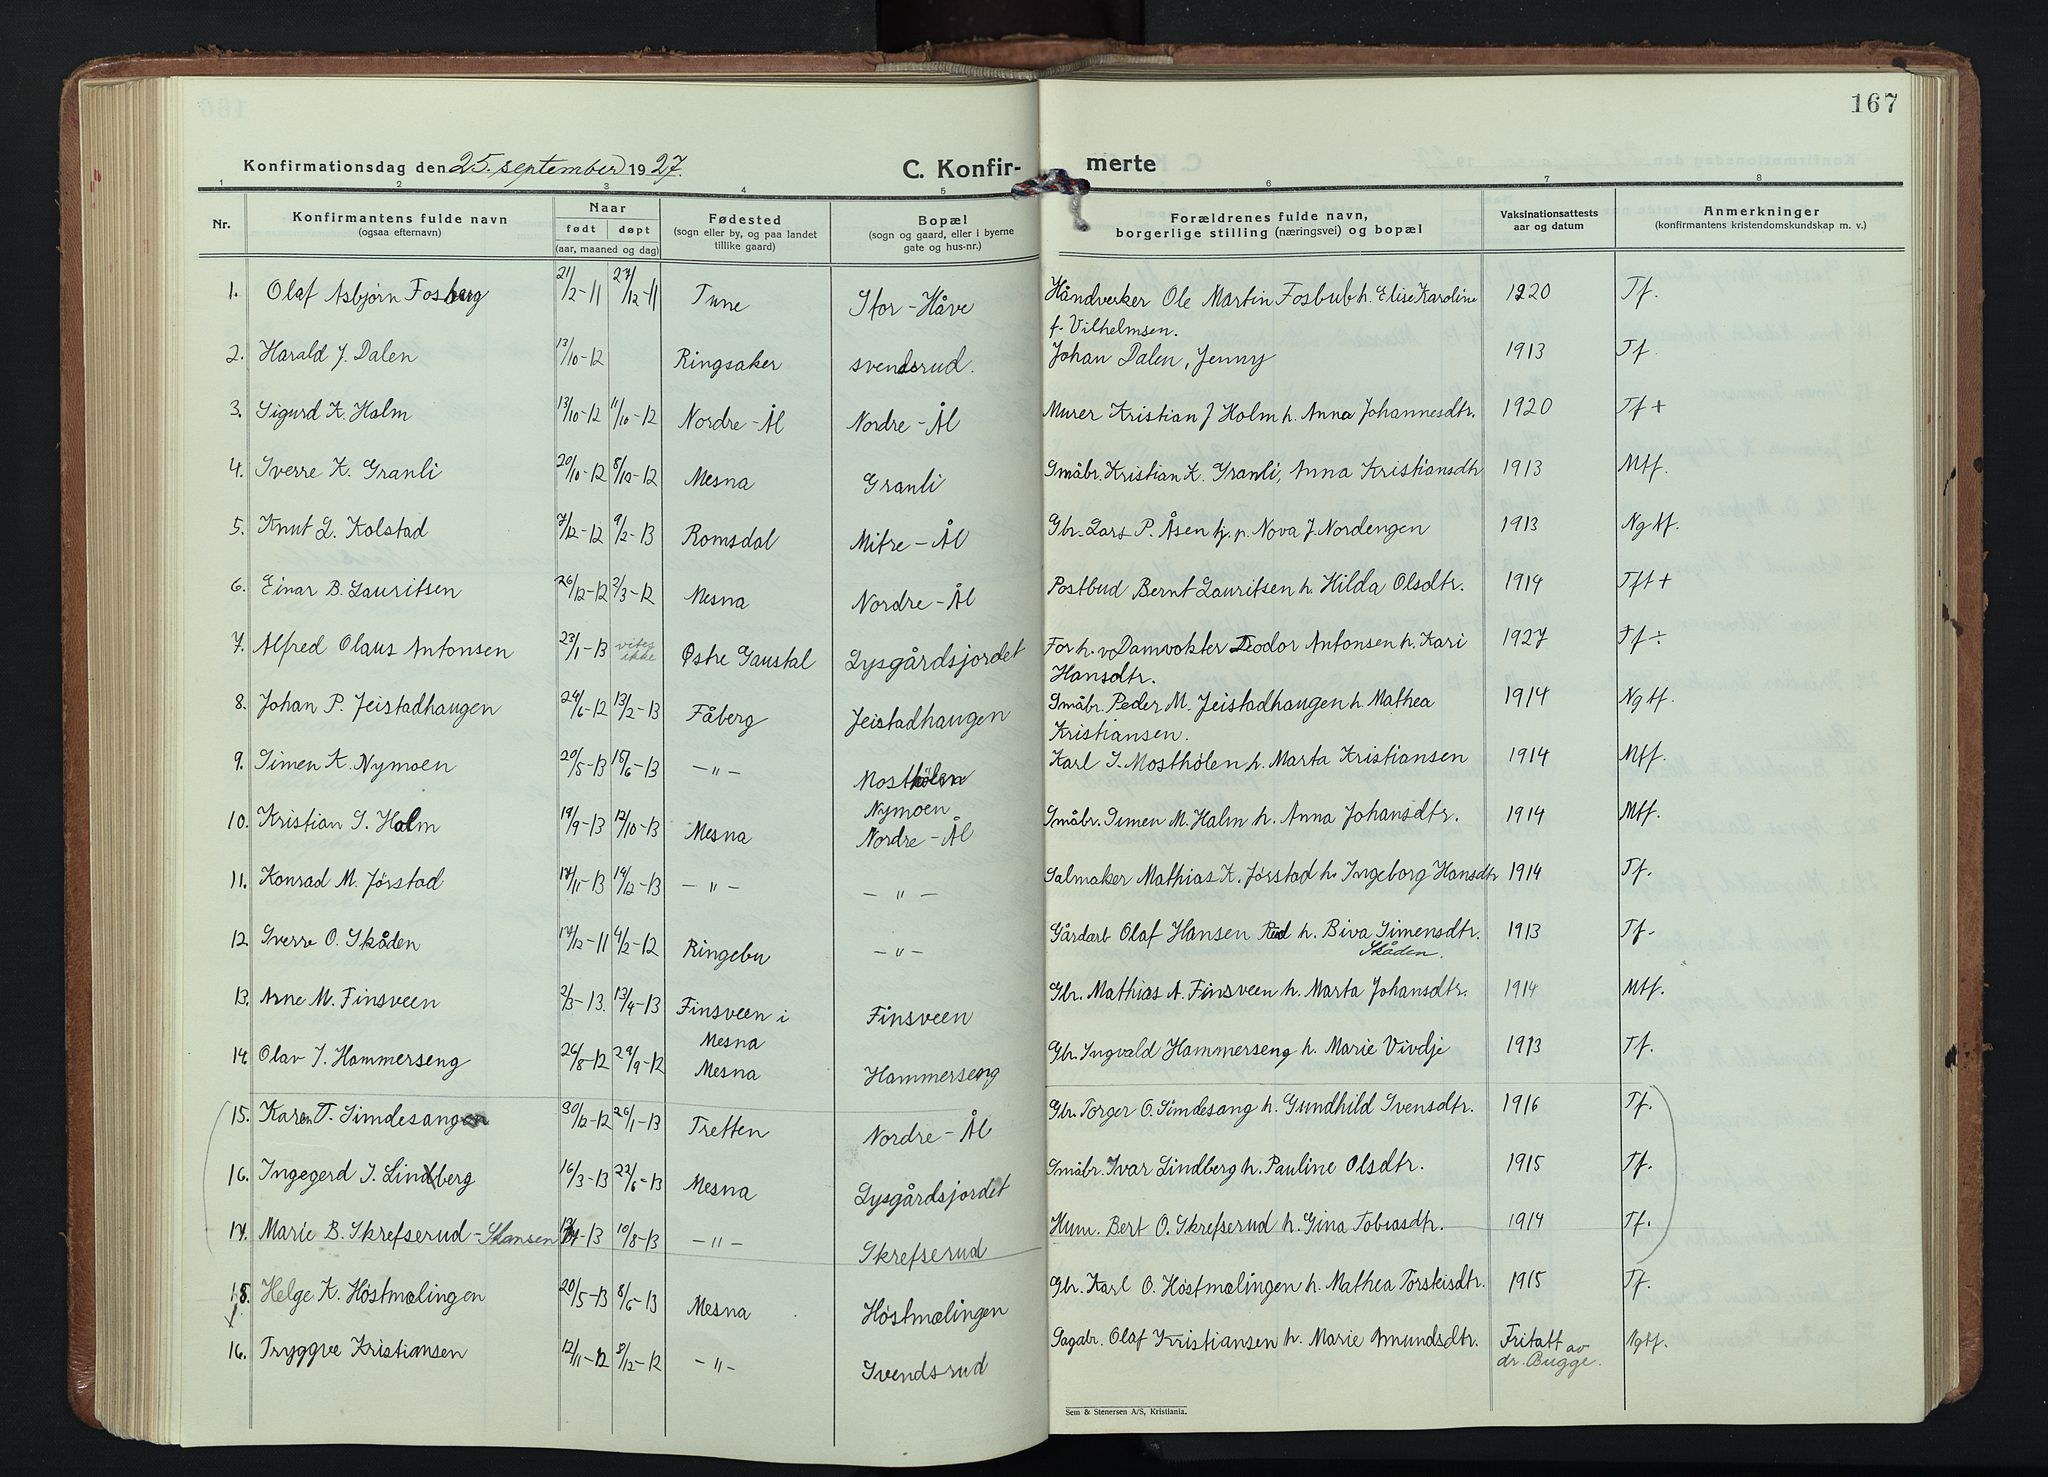 167
Konfirmationsdag den 25. september 1927.
C. Konfir- merte
1 2 3 4 5 6 7 8
Nr.
Konfirmantens fulde navn
(ogsaa efternavn)
Naar
født døpt
(aar, maaned og dag)
Fødested
(sogn eller by, og paa landet
tillike gaard)
Bopæl
(sogn og gaard, eller i byerne
gate og hus-nr.)
Forældrenes fulde navn,
borgerlige stilling (næringsvei) og bopæl
Vaksinationsattests
aar og datum
Anmerkninger
(konfirmantens kristendomskundskap m. v.)
1. Olaf Asbjørn Fosberg 21/2-11 27/12-11 Tune Sfor-Håve Håndverker Ole Martin Fosbub h. Elise Karoline 1920 Tf.
f. Vilhelmsen.
2. Harald J. Dalen 13/10-12 Ringsaker svendsrud. Johan Dalen, Jenny 1913 Tf.
3. Sigurd K. Holm 13/10-12 11/10-12 Nordre-Ål Nordre-Ål Murer Kristian J Holm h. Anna Johannesdtr. 1920 Tf+
4. Sverre K. Granli 20/10-12 8/10-12 Mesna Granli Småbr. Kristian K. Granli, Anna Kristiansdtr 1913 Mtf.
5. Knut L. Kolstad 7/12-12 9/2-13 Romsdal Mitre-Ål Gbr. Lars P. Åsen hj. p. Nova J. Nordengen 1913 Ngtf.
6. Einar B. Lauritsen 26/12-12 2/3-12 Mesna Nordre-Ål Postbud Bernt Lauritsen h. Hilda Olsdtr. 1914 Tft+
7. Alfred Olaus Antonsen 23/1-13 vites ikke Østre Gausdal Lysgårdsjordet For h. v Damvokter Teodor Antonsen h. Kari 1927 Tf÷
Hansdtr.
8. Johan P. Jeistadhaugen 24/6-12 13/2-13 Fåberg Jeistadhaugen Småbr. Peder M. Jeistadhaugen h. Mathea 1914 Ngtf.
Kristiansen.
9. Simen K. Nymoen 20/5-13 15/6-13 -"- Mosthølen Karl S. Mosthølen h. Marta Kristiansen 1914 Mtf.
Nymoen
10. Kristian S. Holm 19/9-13 12/10-13 Mesna Nordre-Ål Småbr. Simen M. Holm h. Anna Johansdtr. 1914 Mtf.
11. Konrad M. Jørstad 17/11-13 14/12-13 -"- -"- Salmaker Mathias K. Jørstad h. Ingeborg Hansdtr 1914 Tf.
12 Sverre O. Skåden 17/12-11 4/2-12 Ringebu -"- Gårdarb Olaf Hansen Rud h. Biva Simensdtr. 1913 Tf.
Skåden.
13. Arne M. Finsveen 2/3-13. 13/4-13 Finsveen i Finsveen Gbr. Mathias A. Finsveen h. Marta Johansdtr. 1914 Mtf.
Mesna
14. Olav I. Hammerseng 26/8-12 29/9-12 Mesna Hammerseng Gbr. Ingvald Hammerseng h. Marie Vivdje 1913 Tf.
15. Karen T. Simdesangen 30/12-12 26/1-13 Tretten Nordre-Ål Gbr. Torger O. Simdesang h. Gundhild Svensdtr. 1916 Tf.
16. Ingegerd I. Lindberg 16/3-13 22/6-13 Mesna Lysgårdsjordet Småbr. Ivar Lindberg h. Pauline Olsdtr. 1915 Tf.
17. Marie B. Skrefserud-Skansen 13/4-13 10/8-13 -"- Skrefserud Hum. Bert O. Skrefserud h. Gina Tobiasdtr. 1914 Tf.
18. Helge K. Høstmælingen 20/5-13 8/6-13 Mesna Høstmælingen Gbr. Karl O. Høstmælingen h. Mathea Torskeisdtr. 1915 Tf.
16. Tryggve Kristiansen 12/11-12 8/12-12 -"- Svendsrud Sagabr. Olaf Kristiansen h. Marie Amundsdtr. Fritatt av Ngtf.
dr. Bugge.
Sem & Stenersen A/S, Kristiania.